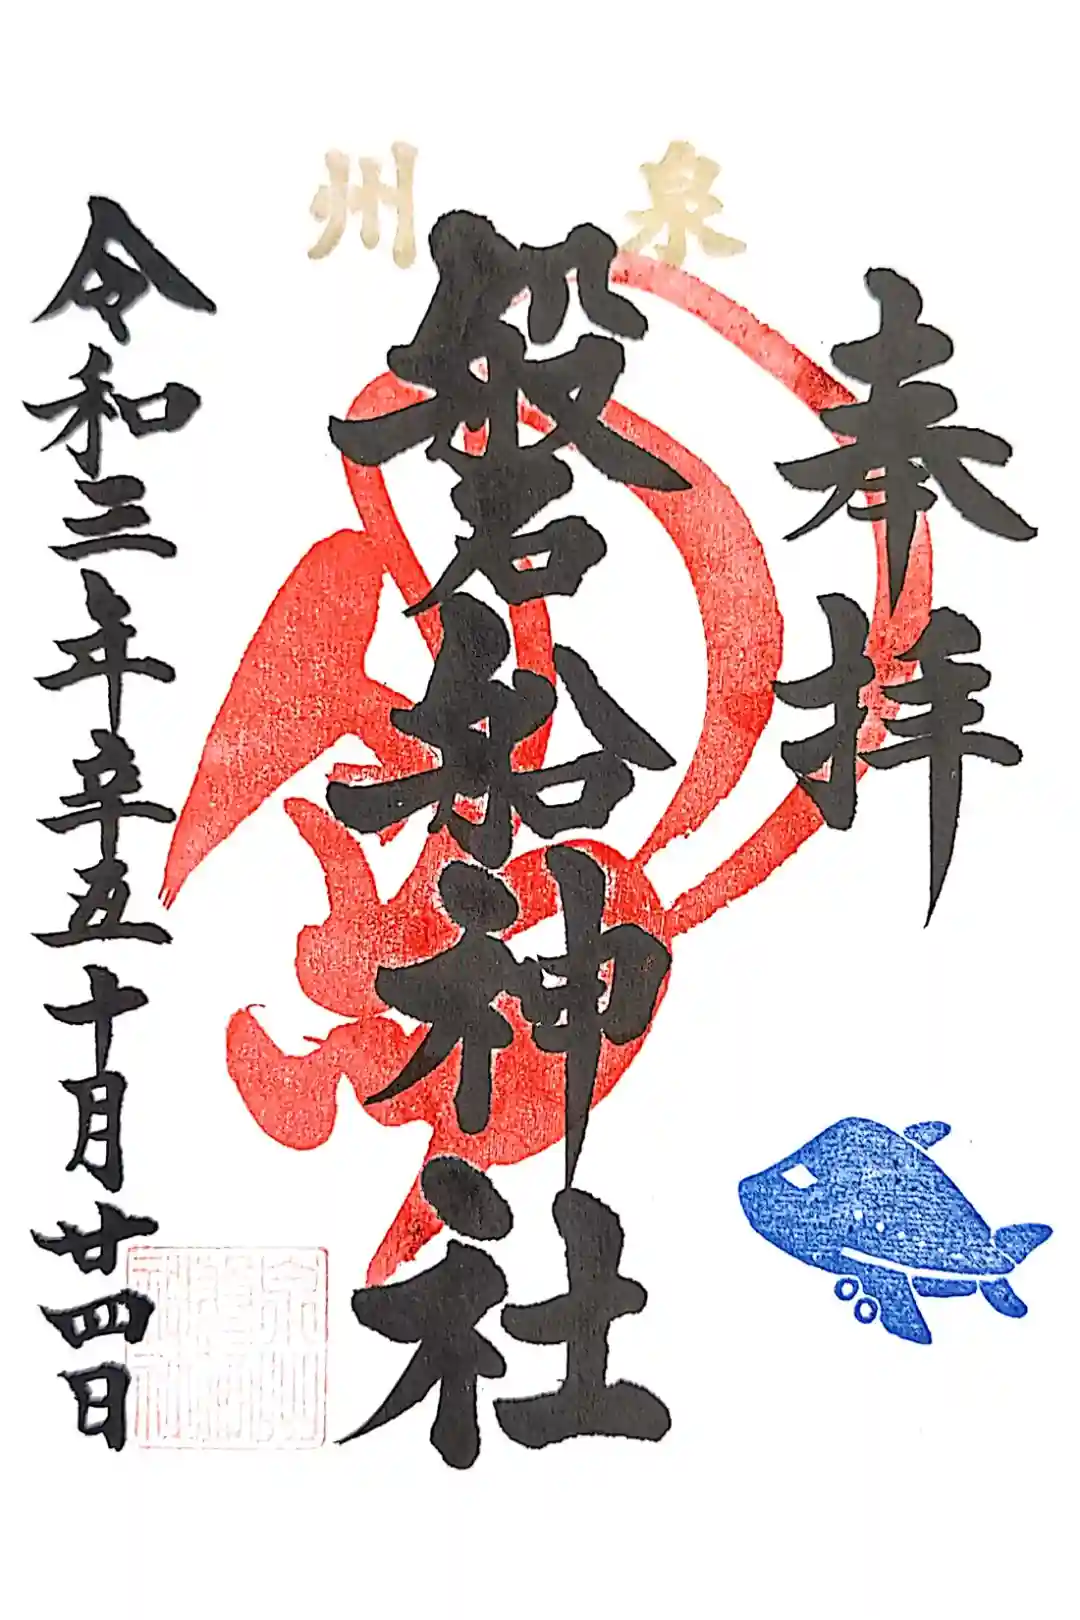 泉州
奉拝
磐船神社
令和三年辛五十月廿四日